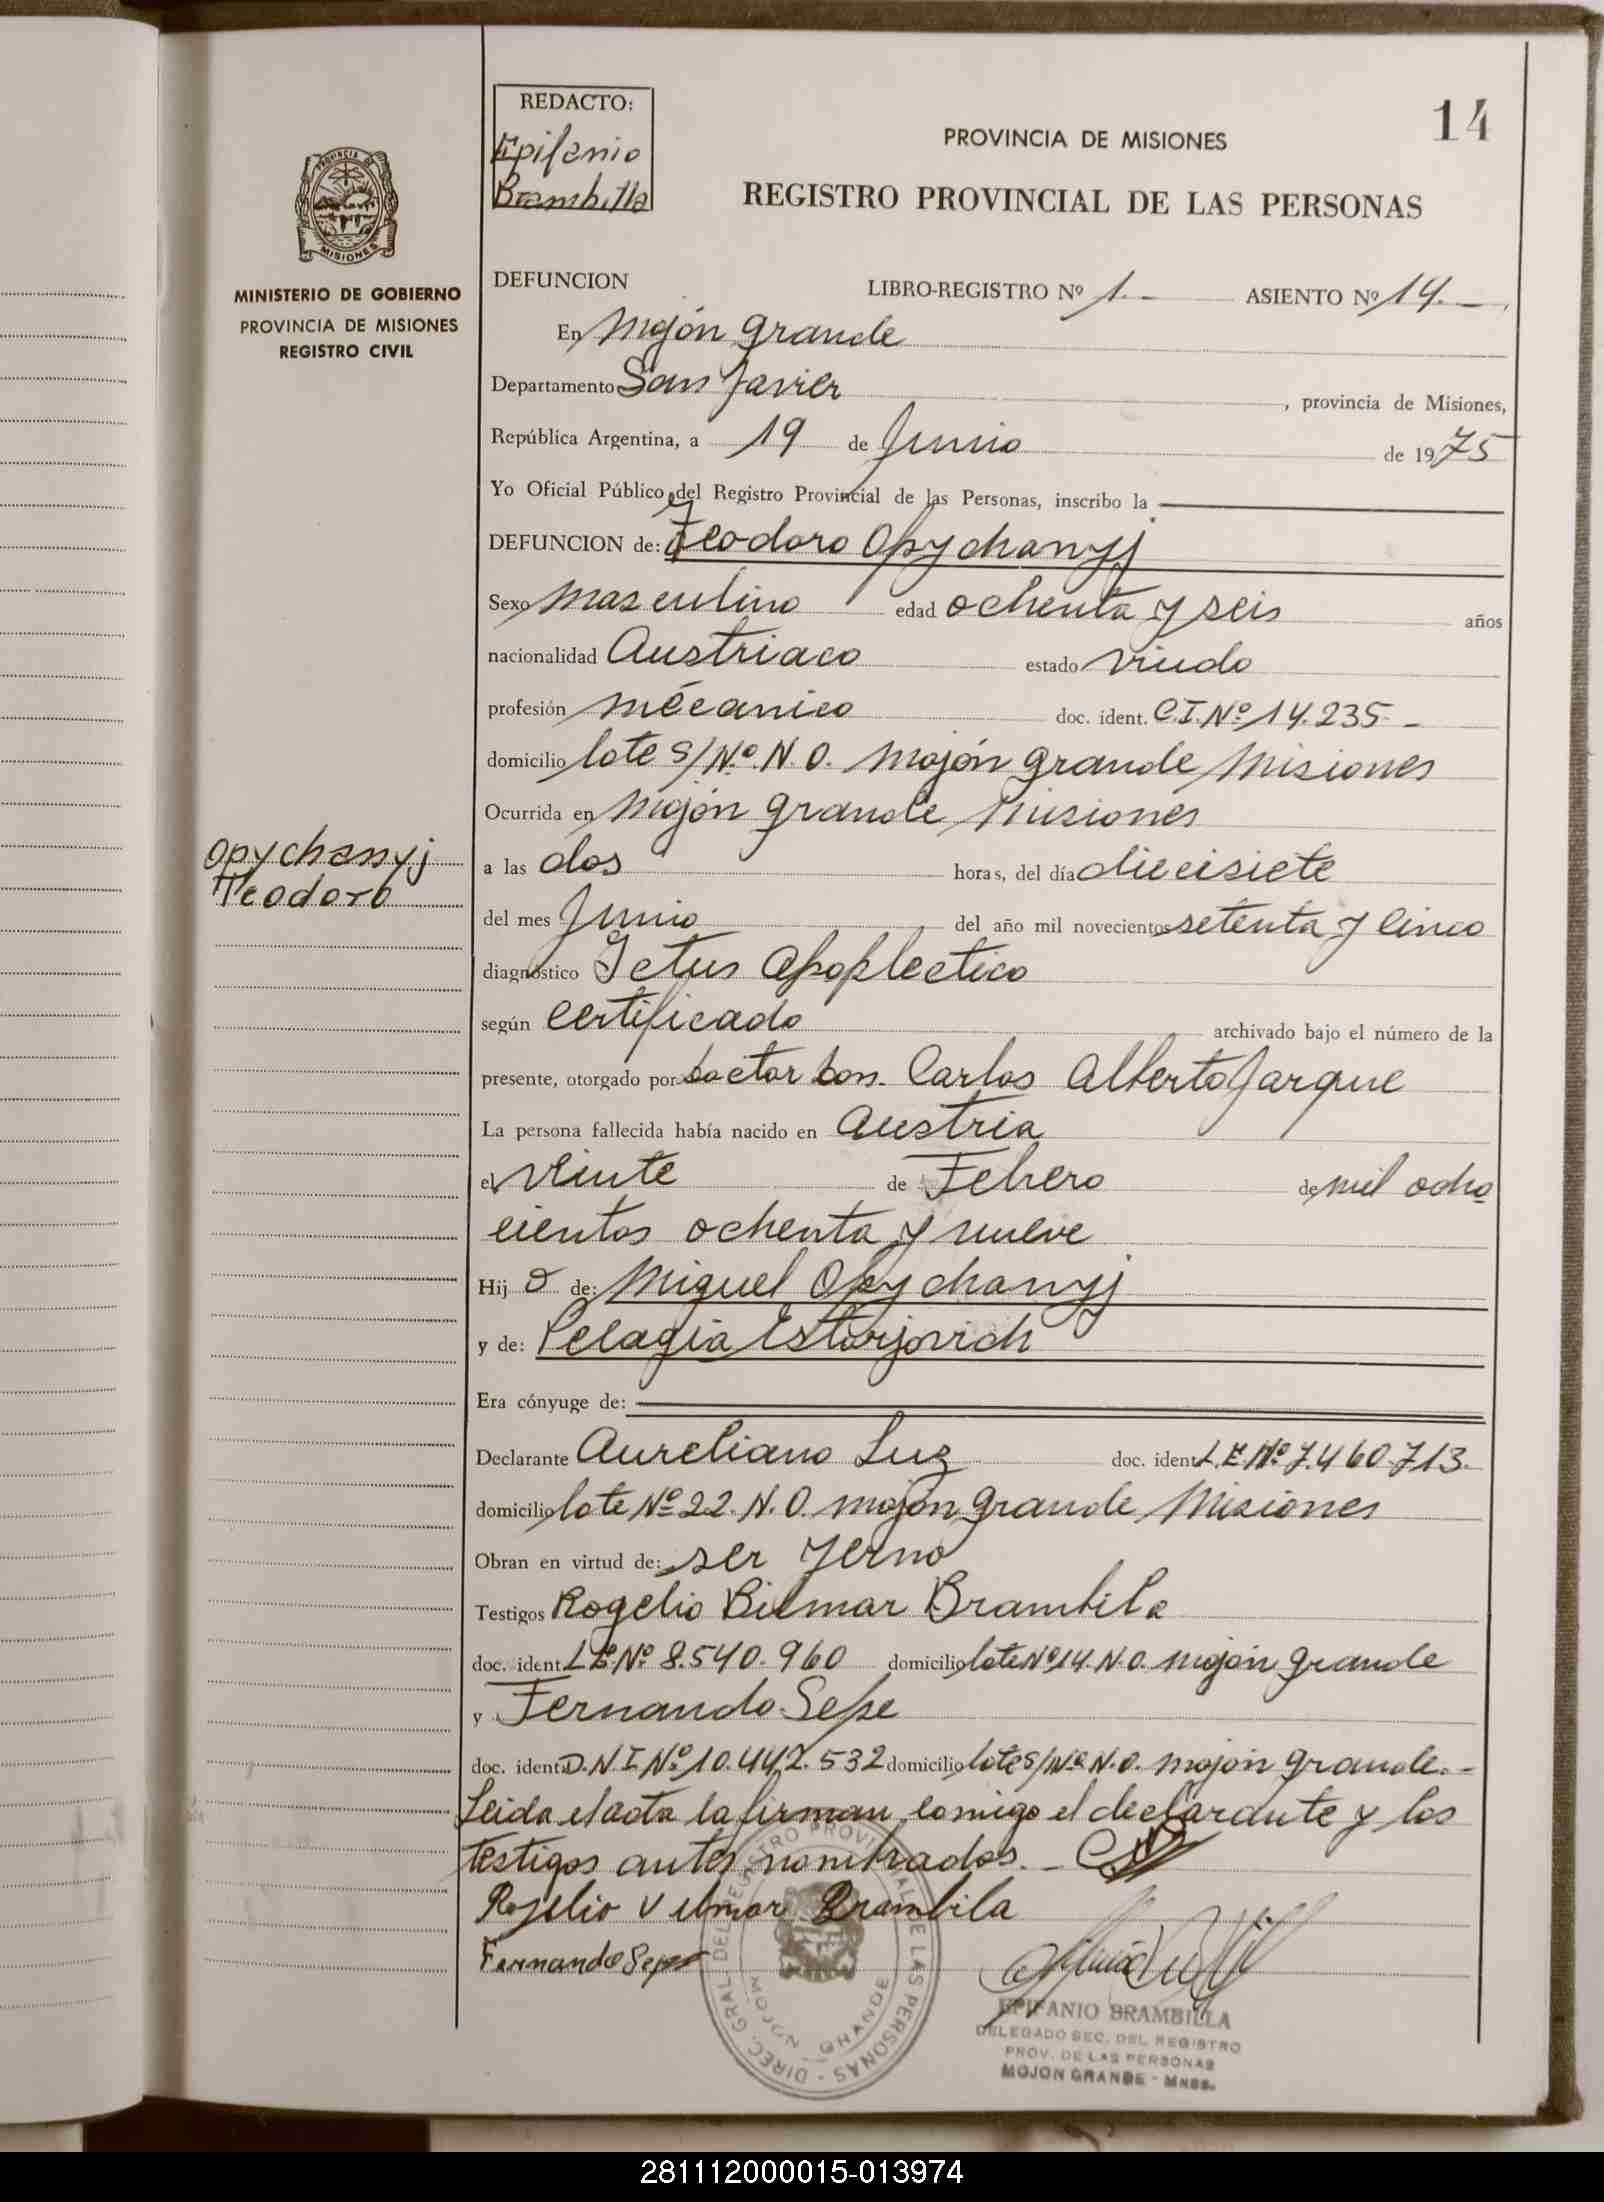 14
REDACTO:
Epifanio
Brambilla
PROVINCIA DE MISIONES
REGISTRO PROVINCIAL DE LAS PERSONAS
PROVINCIA DE
MISIONES
MINISTERIO DE GOBIERNO
PROVINCIA DE MISIONES
REGISTRO CIVIL
DEFUNCION LIBRO-REGISTRO Nº 1.- ASIENTO Nº 14.-
En Mojón grande
Departamento San Javier, provincia de Misiones,
República Argentina, a 19 de Junio de 1975
Yo Oficial Público del Registro Provincial de las Personas, inscribo la
DEFUNCION de: Teodoro Opychanyj
Sexo masculino edad ochenta y seis años
nacionalidad Austriaco estado viudo
profesión mécanico doc. ident. C.I.Nº 14.235.-
domicilio lote S/Nº. N.O. Mojón grande Misiones
Ocurrida en Mojón grande Misiones
Opychanyj
Teodoro
a las dos horas, del día diecisiete
del mes Junio del año mil novecientos setenta y cinco
diagnóstico Ictus Apoplectico
según certificado archivado bajo el número de la
presente, otorgado por doctor don. Carlos Alberto Jarque
La persona fallecida había nacido en Austria
el veinte de Febrero de mil ocho
cientos ochenta y nueve
Hij o de: Miguel Opychanyj
y de: Pelagia Estorjovich
Era cónyuge de:
Declarante Aureliano Luz doc. ident. L.E.Nº 7.460.713.
domicilio lote Nº 22. N.O. mojón grande Misiones
Obran en virtud de: ser yerno
Testigos Rogelio Bilmar Brambila
doc. ident. L.E.Nº 8.540.960 domicilio lote Nº 14. N.O. mojón grande
y Fernando Sepe
doc. ident. D.N.I.Nº 10.442.532 domicilio lote S/Nº N.O. mojón grande.-
Leida el acta la firman comigo el declarante y los
testigos antes nombrados.-
Rogelio Velmar Brambila
Fernando Sepe
DIREC. GRAL. DEL REGISTRO PROVINCIAL DE LAS PERSONAS
MOJON GRANDE
EPIFANIO BRAMBILLA
DELEGADO SEC. DEL REGISTRO
PROV. DE LAS PERSONAS
MOJON GRANDE - MNES.
281112000015-013974